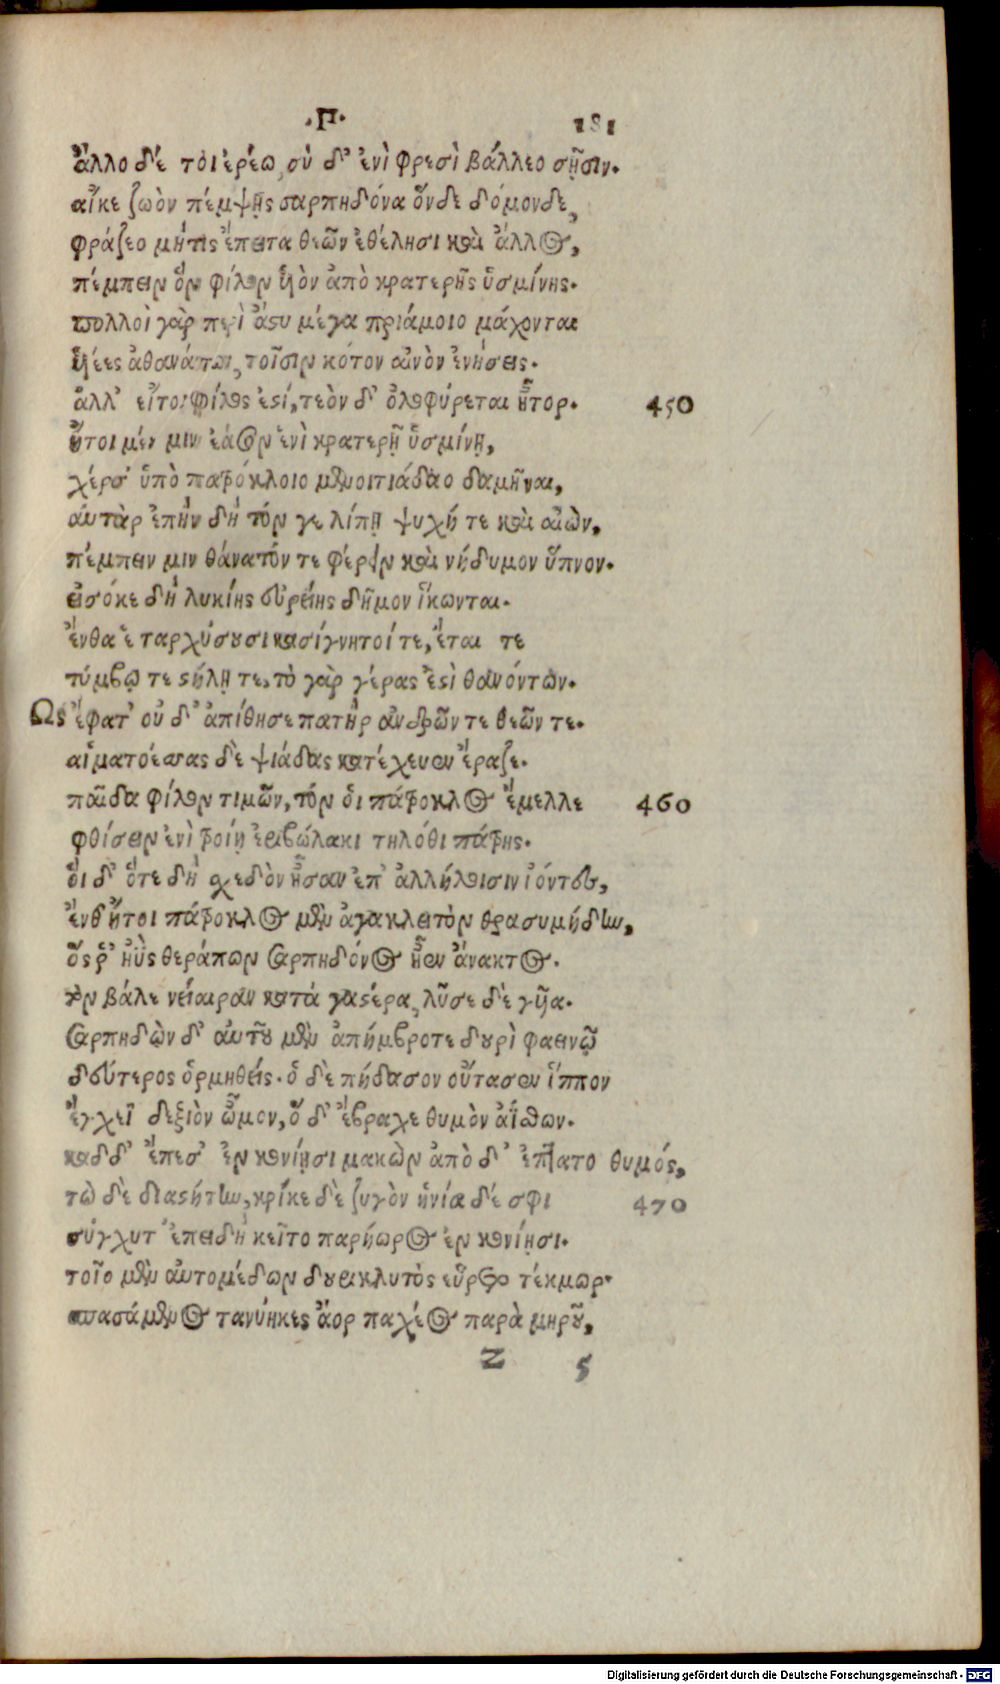 .Π. 181
ἄλλο δέ τοι ἐρέω, σὺ δ' ἐνὶ φρεσὶ βάλλεο σῇσιν.
αἴκε ζωὸν πέμψῃς σαρπηδόνα ὅνδε δόμονδε,
φράζεο μήτις ἔπειτα θεῶν ἐθέλησι καὶ ἄλλος,
πέμπειν ὃν φίλον ἱὸν ἀπὸ κρατερῆς ὑσμίνης.
πολλοὶ γὰρ περὶ ἄστυ μέγα πριάμοιο μάχονται
ἱέες ἀθανάτων, τοῖσιν κότον αἰνὸν ἐνήσεις.
ἀλλ' εἴτοι φίλος ἐστί, τεὸν δ' ὀλοφύρεται ἦτορ. 450
ἤτοι μέν μιν ἔασον ἐνὶ κρατερῇ ὑσμίνῃ,
χέρσ' ὑπὸ πατρόκλοιο μενοιτιάδαο δαμῆναι,
αὐτὰρ ἐπὴν δὴ τόν γε λίπῃ ψυχή τε καὶ αἰὼν,
πέμπειν μιν θάνατόν τε φέρειν καὶ νήδυμον ὕπνον.
εἰσόκε δὴ λυκίης εὐρείης δῆμον ἵκωνται.
ἔνθα ἑ ταρχύσουσι κασίγνητοί τε, ἔται τε
τύμβῳ τε στήλῃ τε, τὸ γὰρ γέρας ἐστὶ θανόντων.
Ως ἔφατ' οὐ δ' ἀπίθησε πατὴρ ἀνδρῶν τε θεῶν τε.
αἱματοέσσας δὲ ψιάδας κατέχευεν ἔραζε.
παῖδα φίλον τιμῶν, τόν ὁι πάτροκλος ἔμελλε 460
φθίσειν ἐνὶ τροίῃ ἐριβώλακι τηλόθι πάτρης.
ὁι δ' ὅτε δὴ σχεδὸν ἦσαν ἐπ' ἀλλήλοισιν ἰόντες,
ἔνθ' ἤτοι πάτροκλος μὲν ἀγακλειτὸν θρασυμήδην,
ὅς ῥ' ἠῢς θεράπων σαρπηδόνος ἦεν ἄνακτος.
τὸν βάλε νείαιραν κατὰ γαστέρα, λῦσε δὲ γῦια.
σαρπηδὼν δ' αὐτοῦ μὲν ἀπήμβροτε δουρὶ φαεινῷ
δεύτερος ὁρμηθείς. ὁ δὲ πήδασον οὔτασεν ἵππον
ἔγχεϊ δεξιὸν ὦμον, ὅ δ' ἔβραχε θυμὸν ἀΐσθων.
καδδ' ἔπεσ' ἐν κονίῃσι μακὼν ἀπὸ δ' ἔπτατο θυμός,
τὼ δὲ διαστήτην, κρίκε δὲ ζυγὸν ἡνία δέ σφι 470
σύγχυτ' ἐπειδὴ κεῖτο παρήορος ἐν κονίῃσι.
τοῖο μὲν αὐτομέδων δουρικλυτὸς εὕρετο τέκμωρ.
σπασάμενος τανύηκες ἄορ παχέος παρὰ μηροῦ,
Z 5
Digitalisierung gefördert durch die Deutsche Forschungsgemeinschaft - DFG